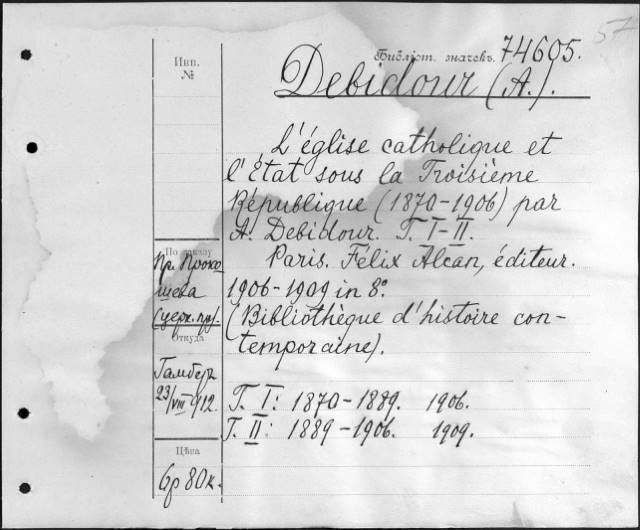 57
Инв.
№
Библіот. значекъ. 74605.
Debidour (A.).
L'église catholique et
l'État sous la Troisième
République (1870-1906) par
A. Debidour. T. I-II.
Paris. Félix Alcan, éditeur.
1906-1909 in 8°.
(Bibliothèque d'histoire con-
temporaine).
T. I: 1870-1889. 1906.
T. II: 1889-1906. 1909.
По заказу
Пр. Проко
шева
(церк. пр.).
Откуда
Гамбер
23/VIII 912.
Цѣна
6р 80к.